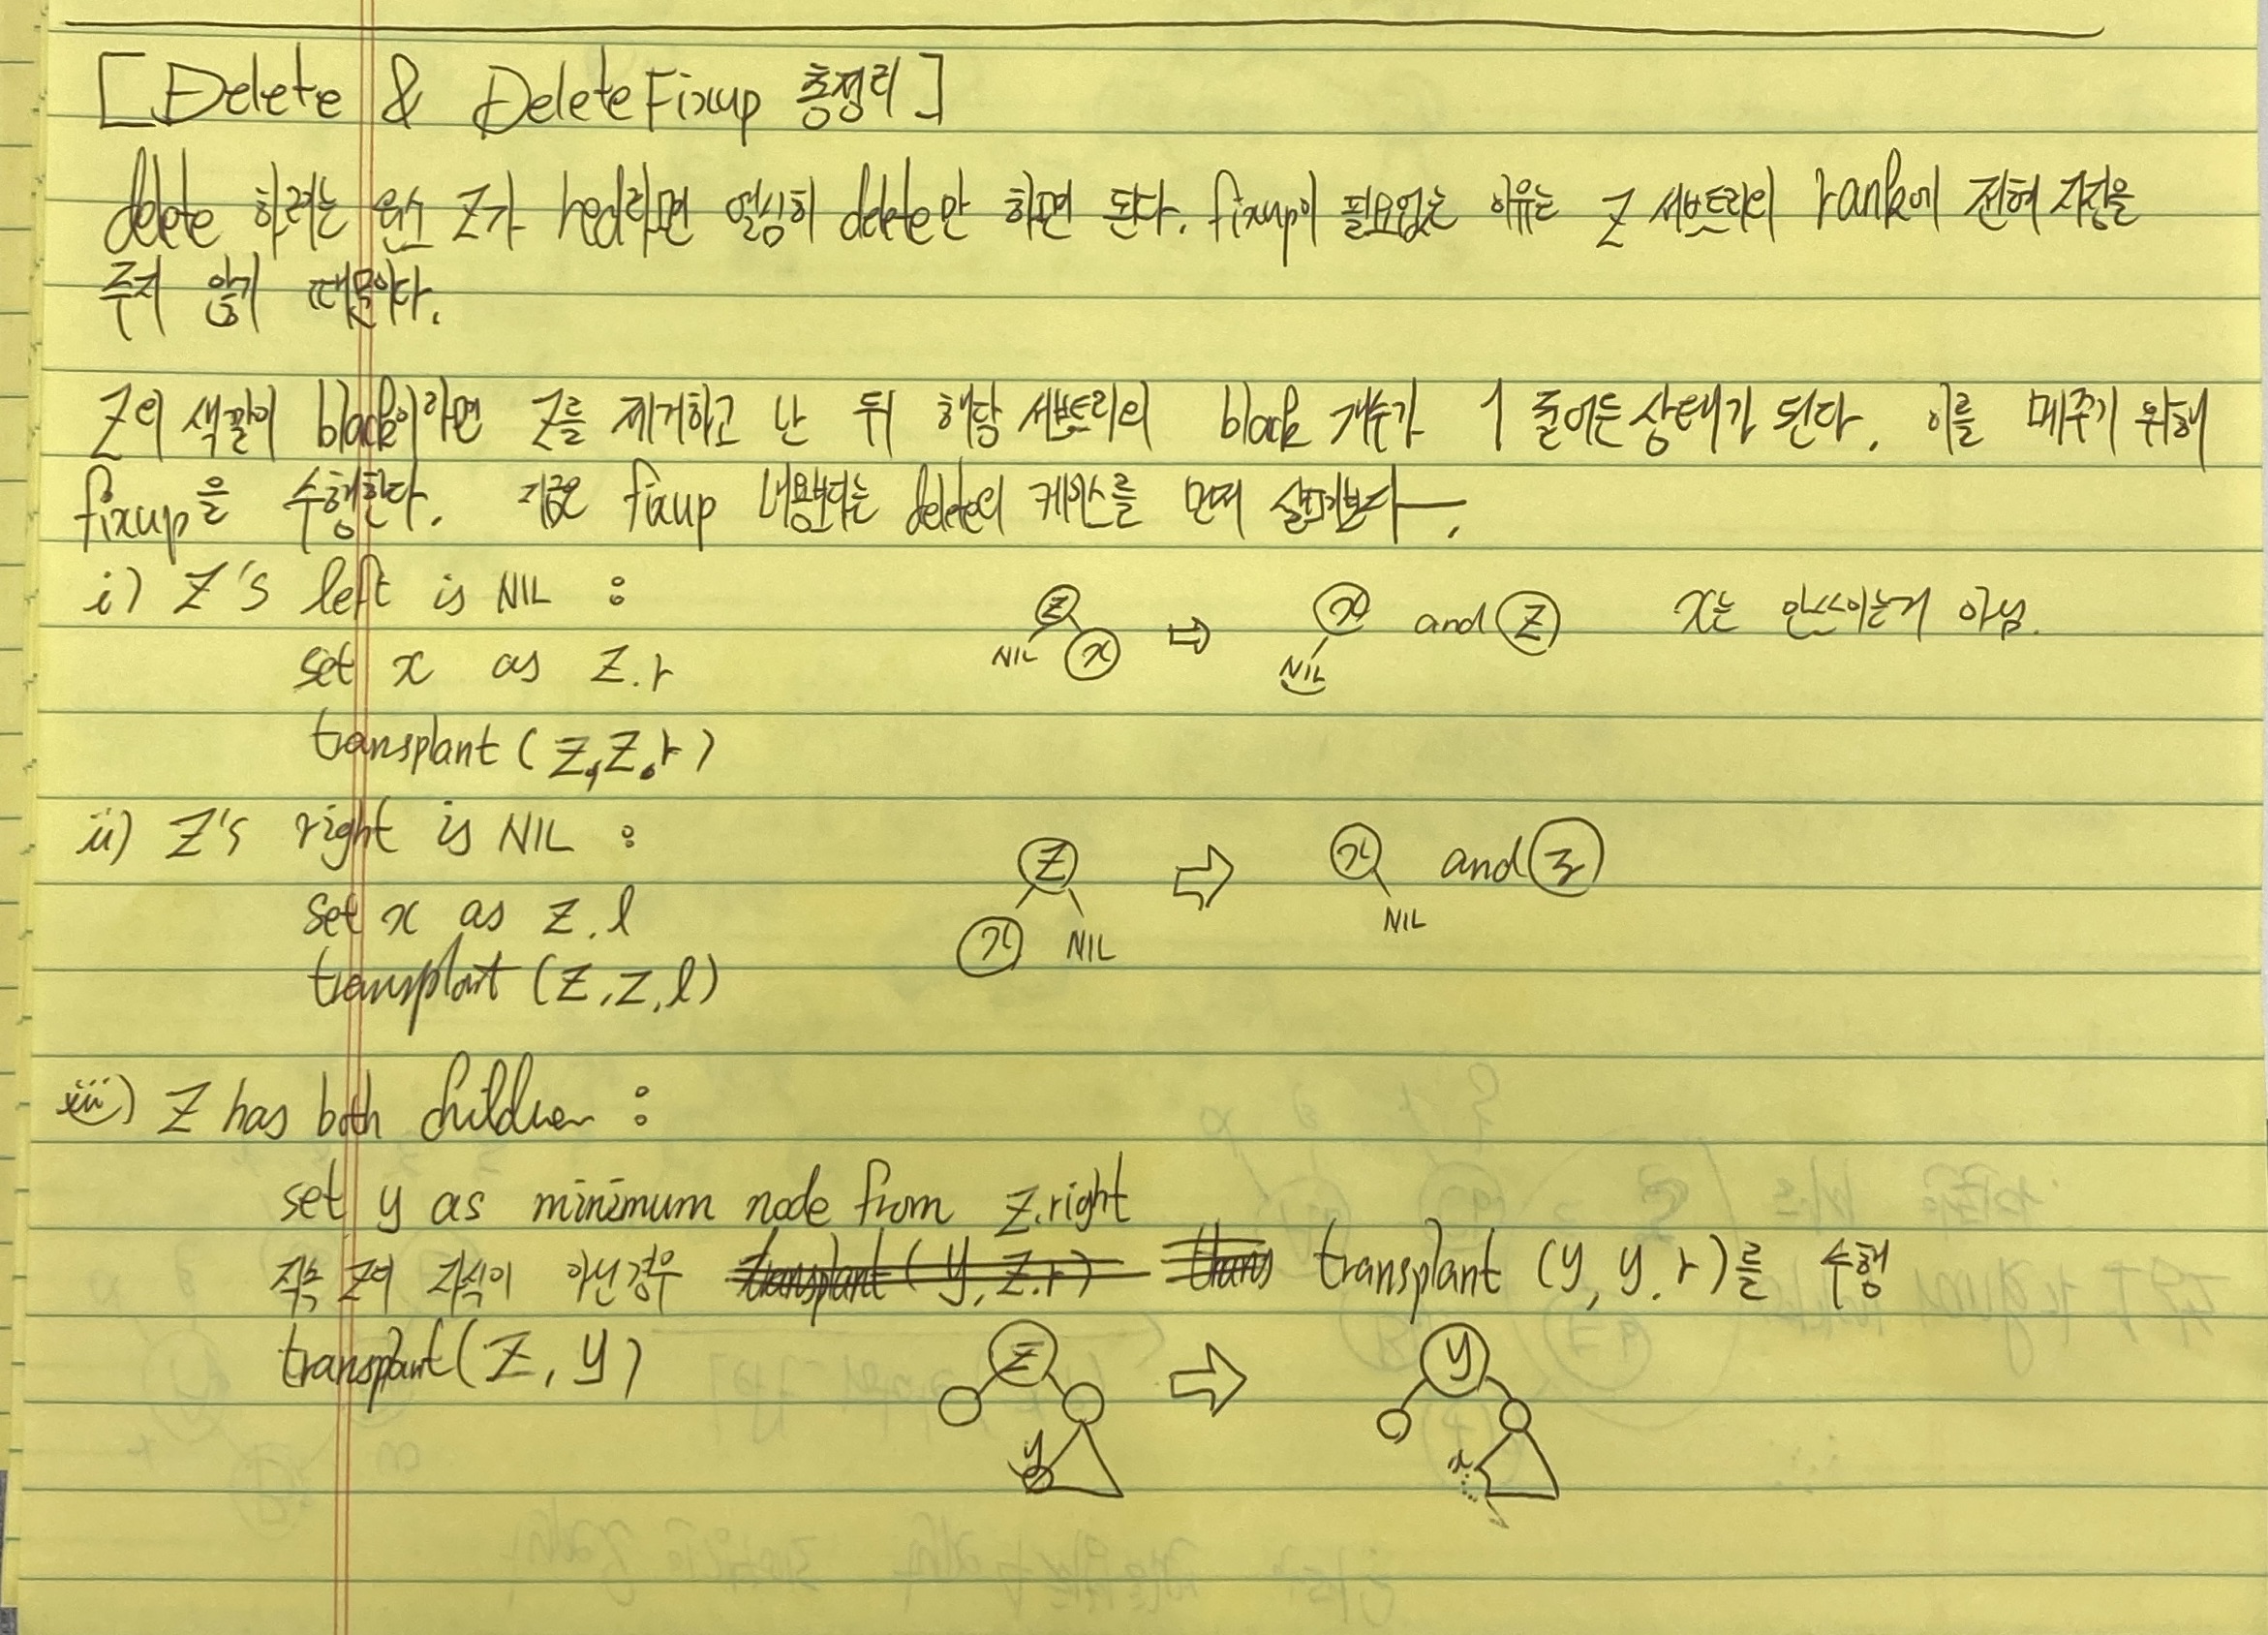 [Delete & DeleteFixup 총정리]
delete 하려는 원소 Z가 red라면 열심히 delete만 하면 된다. fixup이 필요없는 이유는 Z 서브트리의 rank에 전혀 지장을
주지 않기 때문이다.
Z의 색깔이 black이라면 Z를 제거하고 난 뒤 해당 서브트리의 black 개수가 1 줄어든 상태가 된다. 이를 메꾸기 위해
fixup을 수행한다. 지금은 fixup 내용보다는 delete의 케이스를 먼저 살펴보다.
i) Z's left is NIL :
Z NIL x ⇨ x NIL and Z x는 안쓰이는게 아님.
set x as Z.r
transplant (Z, Z.r)
ii) Z's right is NIL :
Z x NIL ⇨ x NIL and Z
set x as Z.l
transplant (Z, Z.l)
iii) Z has both children :
set y as minimum node from Z.right
직속 Z의 자식이 아닌경우 transplant (y, Z.r) trans transplant (y, y.r)를 수행
transplant (Z, y)
Z y ⇨ y x